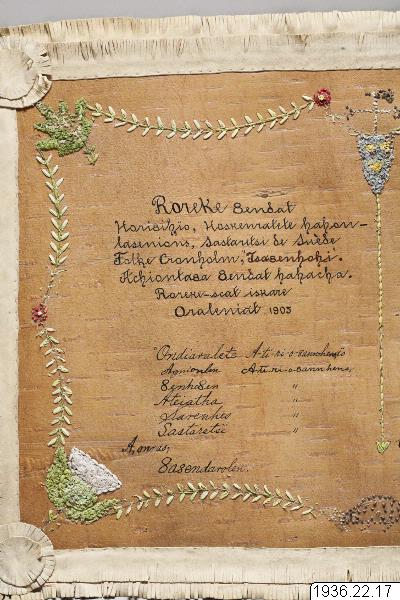 Roreke 8endat
Horicihio, Hoskenratete hahon-
tasenions, Sastaritsi de Suède
Falke Cronholm, Tsasenhohi.
Achiontasa 8endat hahacha.
Roreke-scat iskare
Orateniat 1905
"Ondiaralete A-ti-ri-o-8annhens
A-ti-ri-o-8annhens,
8enho8en "
Ateiatha "
Sarenhes "
Sastaretsi "
8a8endarolen.
1936.22.17